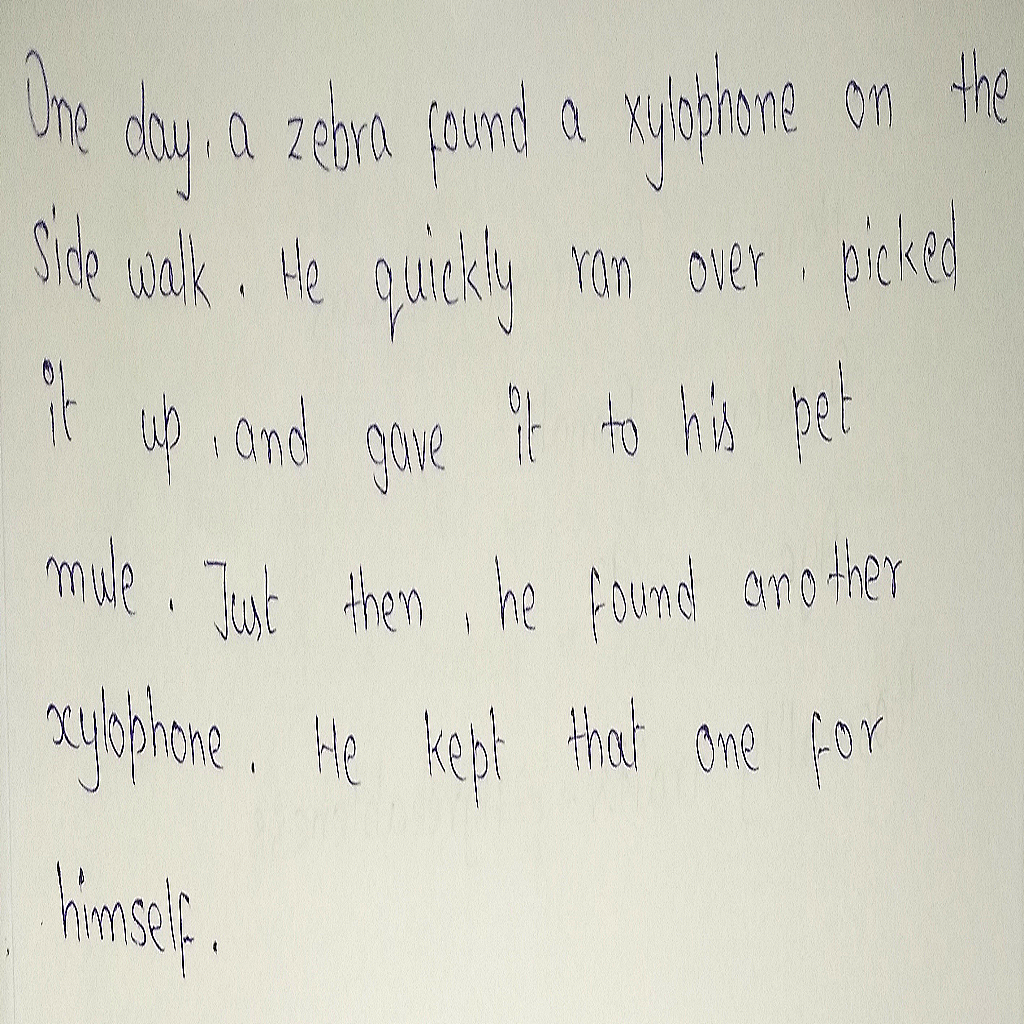 One day, a zebra found a xylophone on the
Side walk. He quickly ran over, picked
it up, and gave it to his pet
mule. Just then, he found another
xylophone. He kept that one for
himself.